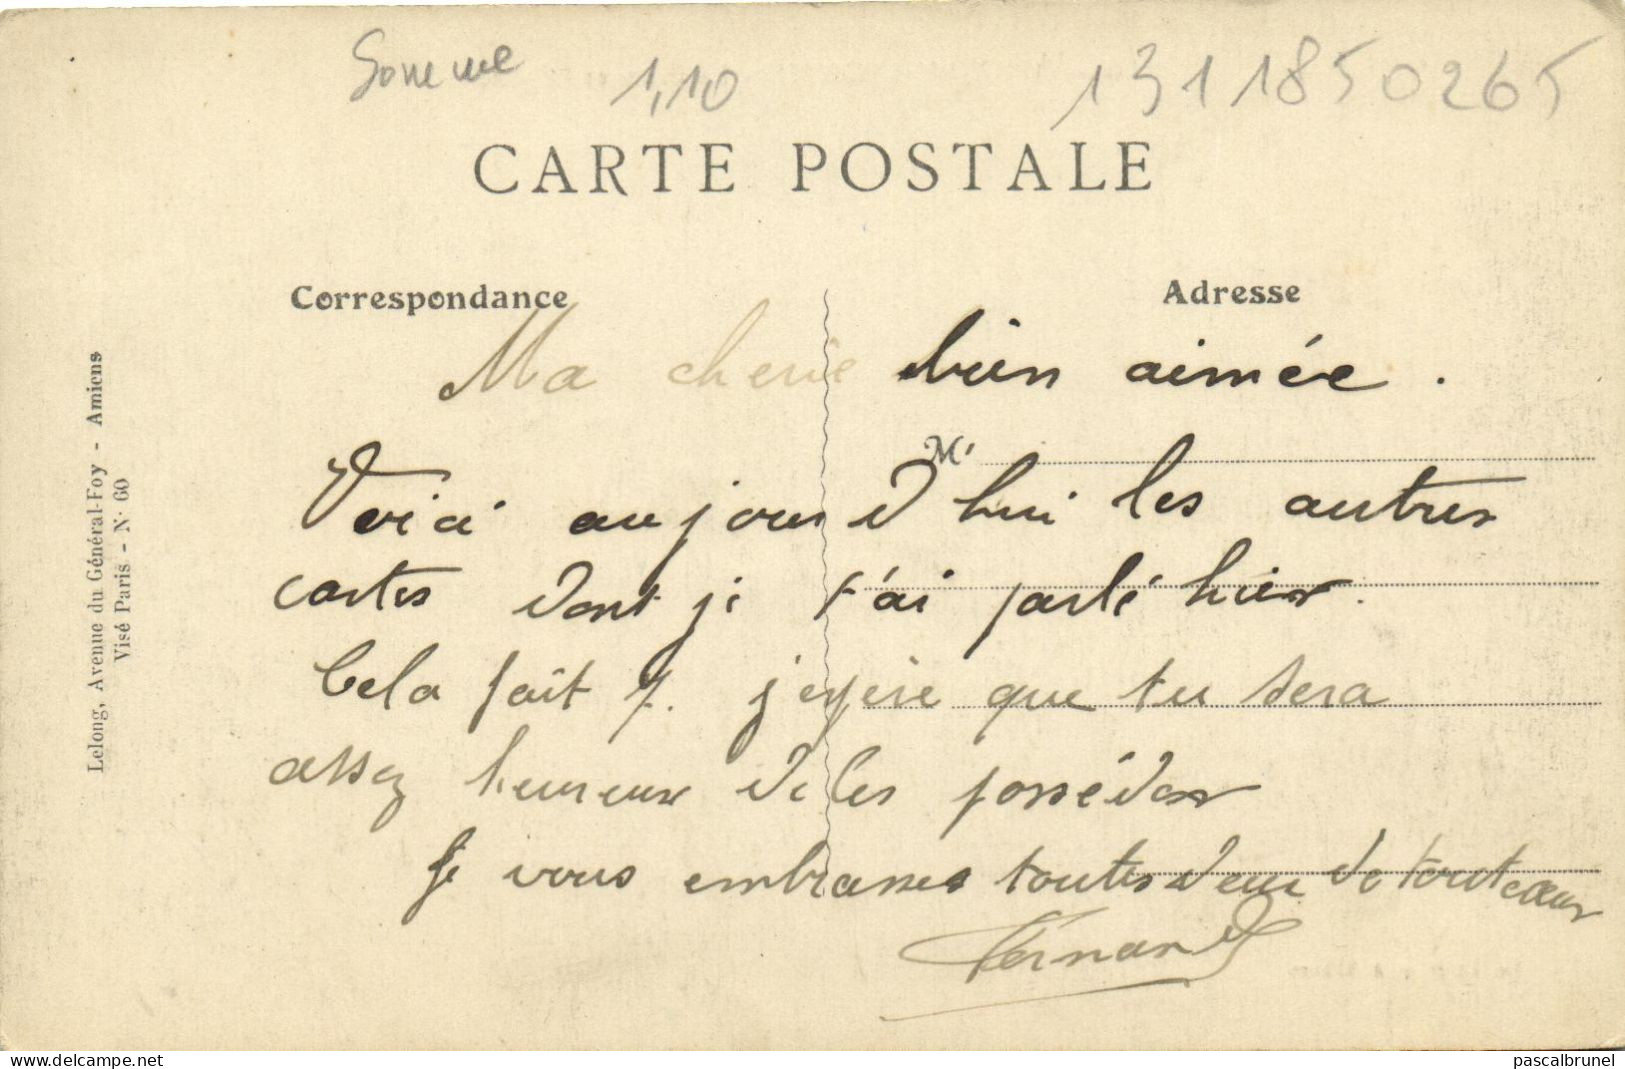 Somme 1,10 1311850265
CARTE POSTALE
Correspondance
Adresse
Ma cherie bien aimée.
M
Voici aujour d'hui les autres
cartes dont je t'ai parlé hier.
Cela fait 7. j'espère que tu sera
assez heureux de les posséder
Je vous embrasses toutes deux de tout cœur
Fernand
Lelong, Avenue du Général-Foy - Amiens
Visé Paris - N° 60
delcampe.net
pascalbrunel